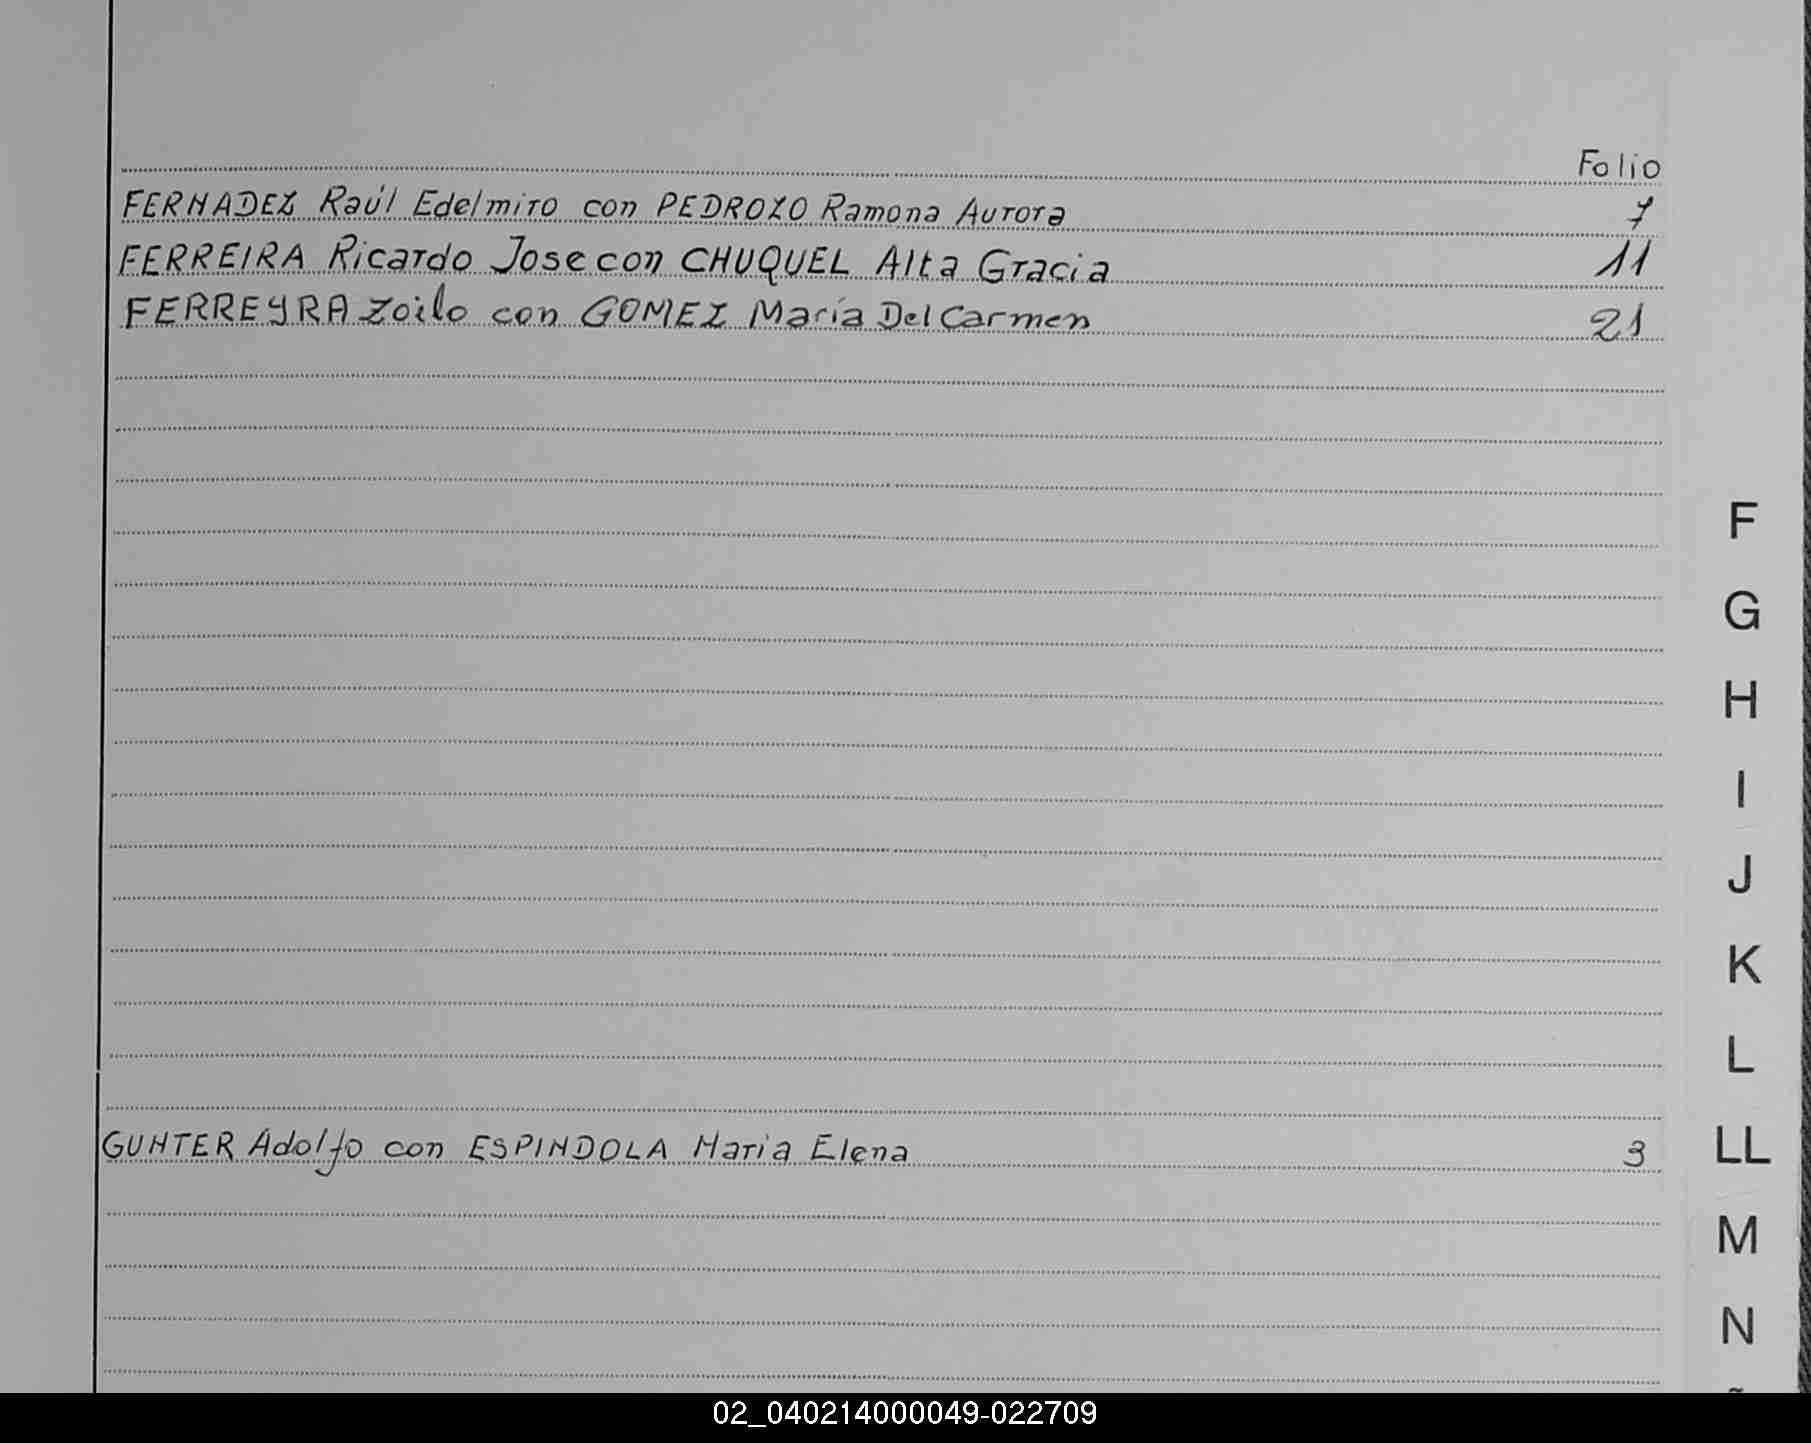 Folio
FERNADEZ Raúl Edelmiro con PEDROZO Ramona Aurora 7
FERREIRA Ricardo Jose con CHUQUEL Alta Gracia 11
FERREYRA Zoilo con GOMEZ María Del Carmen 21
F
G
H
I
J
K
L
GUNTER Adolfo con ESPINDOLA Maria Elena 3
LL
M
N
02_040214000049-022709